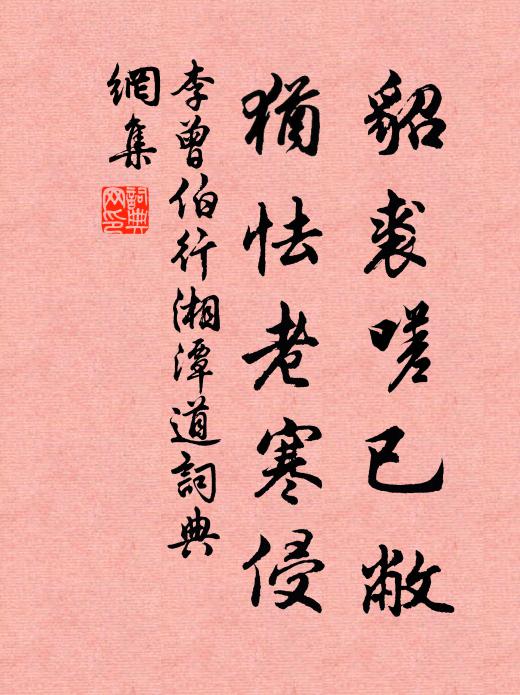 貂裘嗟已敝
猶怯老寒侵
李曾伯行湘潭道詞典
網集
詞典網印